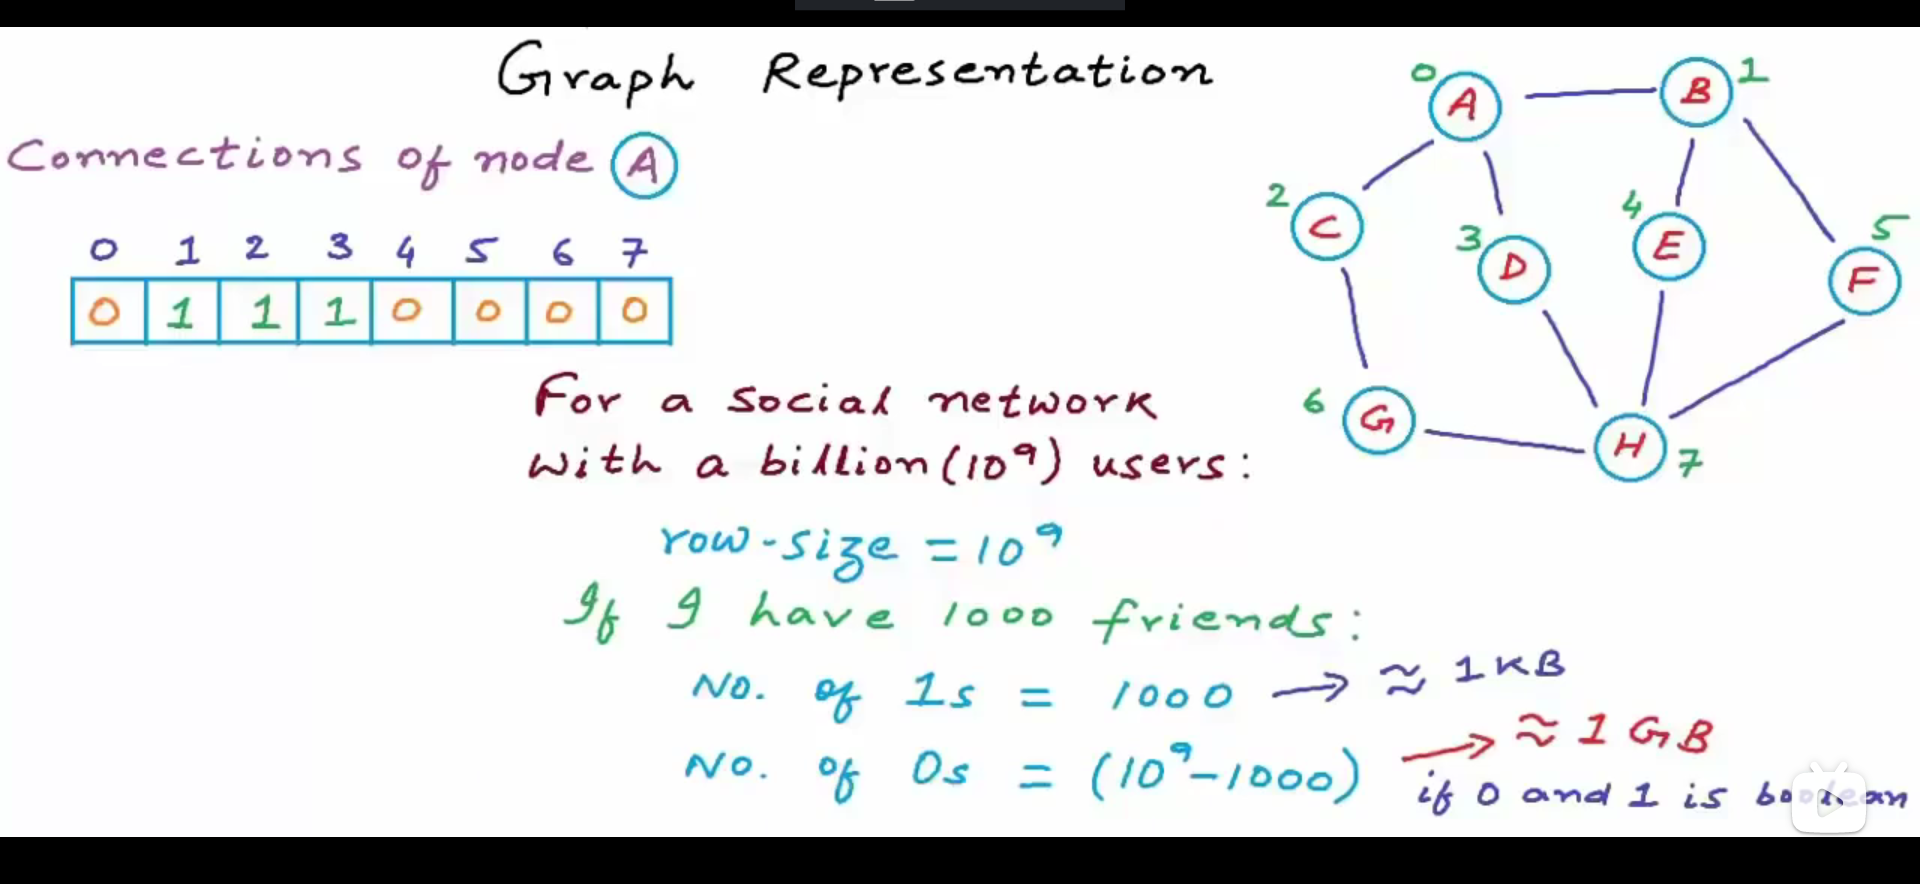 Graph Representation
Connections of node A
0 1 2 3 4 5 6 7
0 1 1 1 0 0 0 0
For a social network
with a billion (10⁹) users:
row-size = 10⁹
If I have 1000 friends:
No. of 1s = 1000 → ≈ 1 KB
No. of 0s = (10⁹-1000) → ≈ 1 GB
if 0 and 1 is boolean
0 A B 1
2 C 3 D 4 E 5 F
6 G H 7